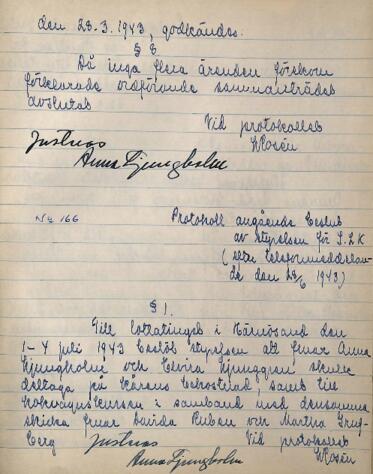 den 28.3.1943, godkändes.
§ 8
Då inga flera ärenden förekom
förklarade ordförande sammanträdet
avslutat
Vid protokollet
Justeras
Anna Ljungholm
Nr 166
Protokoll angående beslut
av styrelsen för S.L.K
(efter telefonmeddelan-
de den 23/6 1943)
§ 1.
Till lottatinget i Härnösand den
1-4 juli 1943 beslöt styrelsen att fruar Anna
Ljungholm och Elvira Ljunggran skulle
deltaga på kårens bekostnad, samt till
kokvagnskursen i samband med densamma
skicka fruar Davida Ruban och Martha Gruf-
berg
Justeras
Vid protokollet
Anna Ljungholm